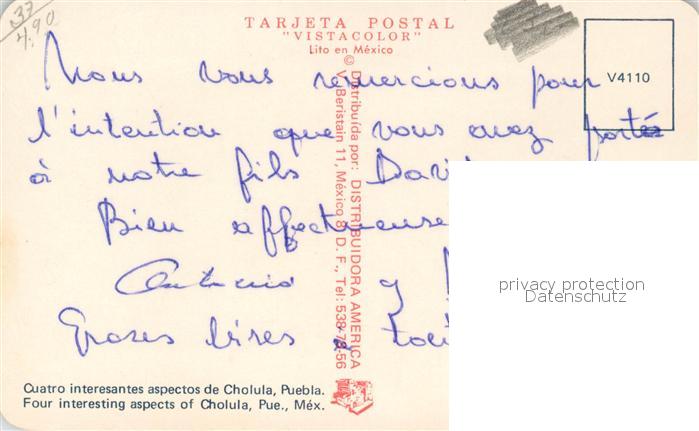 37
4.90
TARJETA POSTAL
"VISTACOLOR"
Lito en México
©
V4110
Nous vous remercions pour
l'intention que vous avez portée
à notre fils David
Bien affectueuse
Antonio y
Groses bises a
Distribuída por: DISTRIBUIDORA AMERICA
V. Beristain 11, México 8, D. F., Tel: 538-78-56
privacy protection
Datenschutz
Cuatro interesantes aspectos de Cholula, Puebla.
Four interesting aspects of Cholula, Pue., Méx.